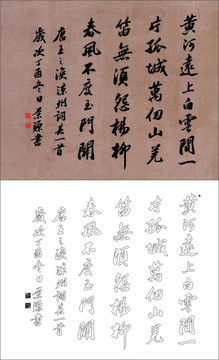 黃河遠上白雲間一
片孤城萬仞山羌
笛無須怨楊柳
春風不度玉門關
唐王之渙涼州詞一首
歲次丁酉冬日書
黃河遠上白雲間一
片孤城萬仞山羌
笛無須怨楊柳
春風不度玉門關
唐王之渙涼州詞一首
歲次丁酉冬日書